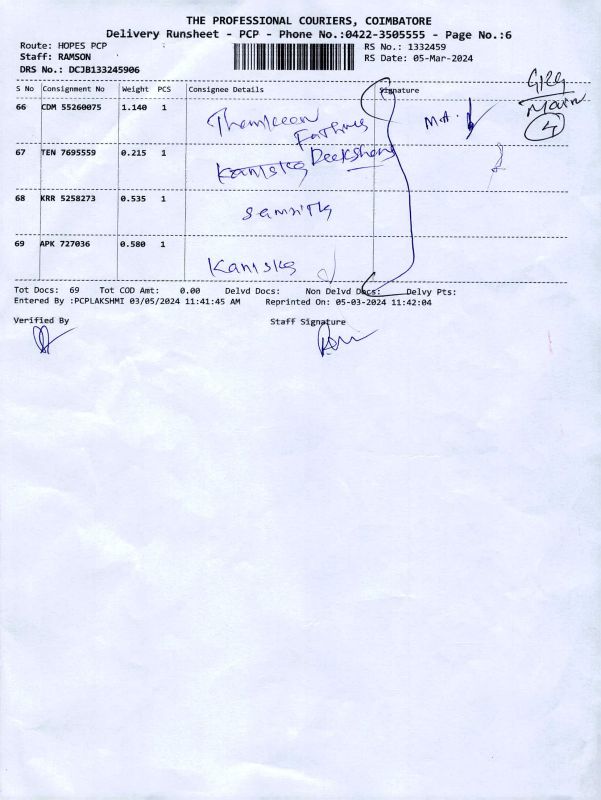 THE PROFESSIONAL COURIERS, COIMBATORE
Delivery Runsheet - PCP - Phone No.:0422-3505555 - Page No.:6
Route: HOPES PCP RS No.: 1332459
Staff: RAMSON RS Date: 05-Mar-2024
DRS No.: DCJB133245906
S No Consignment No Weight PCS Consignee Details Signature
66 CDM 55260075 1.140 1
Main
4
67 TEN 7695559 0.215 1
Kaniska Deekshana
68 KRR 5258273 0.535 1
Samrith
69 APK 727036 0.580 1
Kaniska
Tot Docs: 69 Tot COD Amt: 0.00 Delvd Docs: Non Delvd Docs: Delvy Pts:
Entered By :PCPLAKSHMI 03/05/2024 11:41:45 AM Reprinted On: 05-03-2024 11:42:04
Verified By Staff Signature